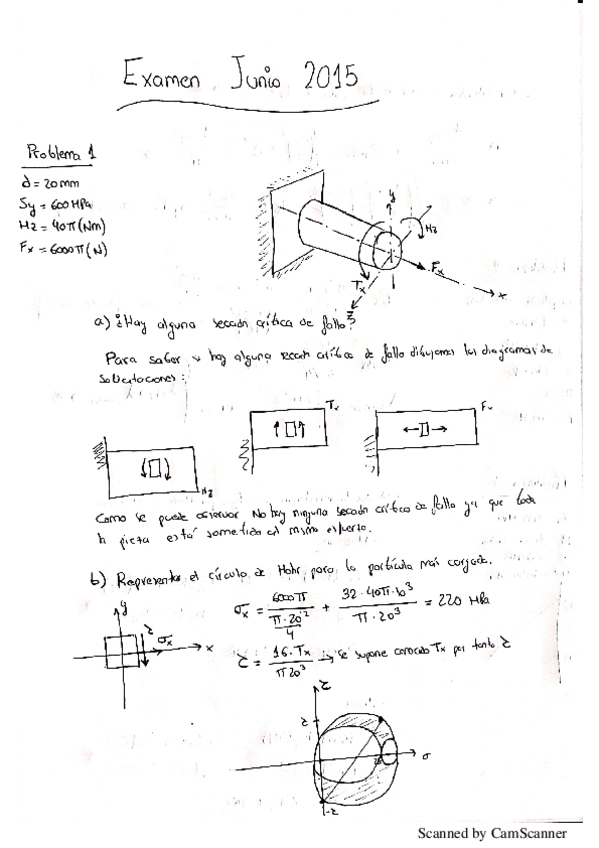 Examen Junio 2015
Problema 1
d = 20 mm
Sy = 600 MPa
Mz = 40π (Nm)
Fx = 6000π (N)
y
Mz
Fx
Tx
x
z
a) ¿Hay alguna sección crítica de fallo?
Para saber si hay alguna sección crítica de fallo dibujamos los diagramas de
solicitaciones:
Tx
Fx
Mz
Como se puede observar No hay ninguna sección crítica de fallo ya que toda
la pieza está sometida al mismo esfuerzo.
b) Representar el círculo de Mohr para la partícula más cargada.
σx = 6000π / (π·20² / 4) + 32·40π·10³ / (π·20³) = 220 MPa
y
τ
σx
x
τ = 16·Tx / π20³ → se supone conocido Tx por tanto τ
τ
τ
σ
-τ
Scanned by CamScanner